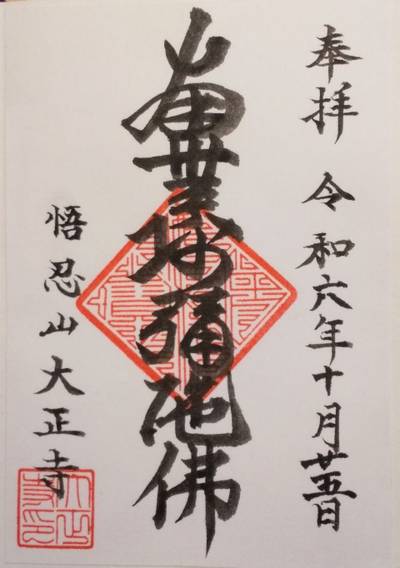 奉拝 令和六年十月廿五日
南無阿彌陀佛
悟忍山大正寺